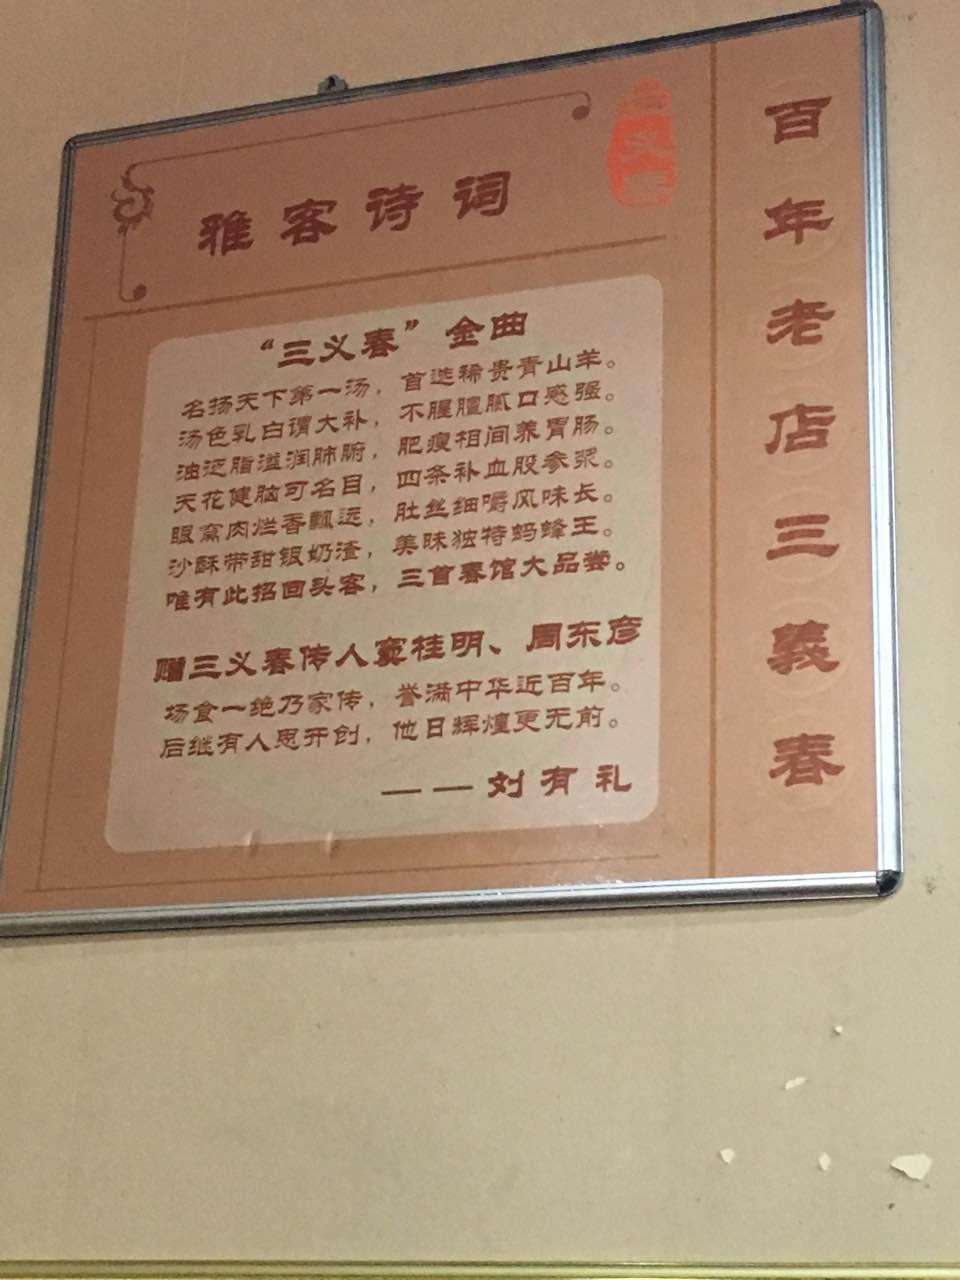 雅客诗词
“三义春”金曲
名扬天下第一汤，首选稀贵青山羊。
汤色乳白谓大补，不腥膻腻口感强。
油还脂溢润肺腑，肥瘦相间养胃肠。
天花健脑可名目，四条补血股参浆。
眼窝肉烂香飘远，肚丝细嚼风味长。
沙酥带甜银奶渣，美味独特蚂蜂王。
唯有此招回头客，三首春馆大品尝。
赠三义春传人窦桂明、周东彦
场食一绝乃家传，誉满中华近百年。
后继有人思开创，他日辉煌更无前。
——刘有礼
百年老店三義春